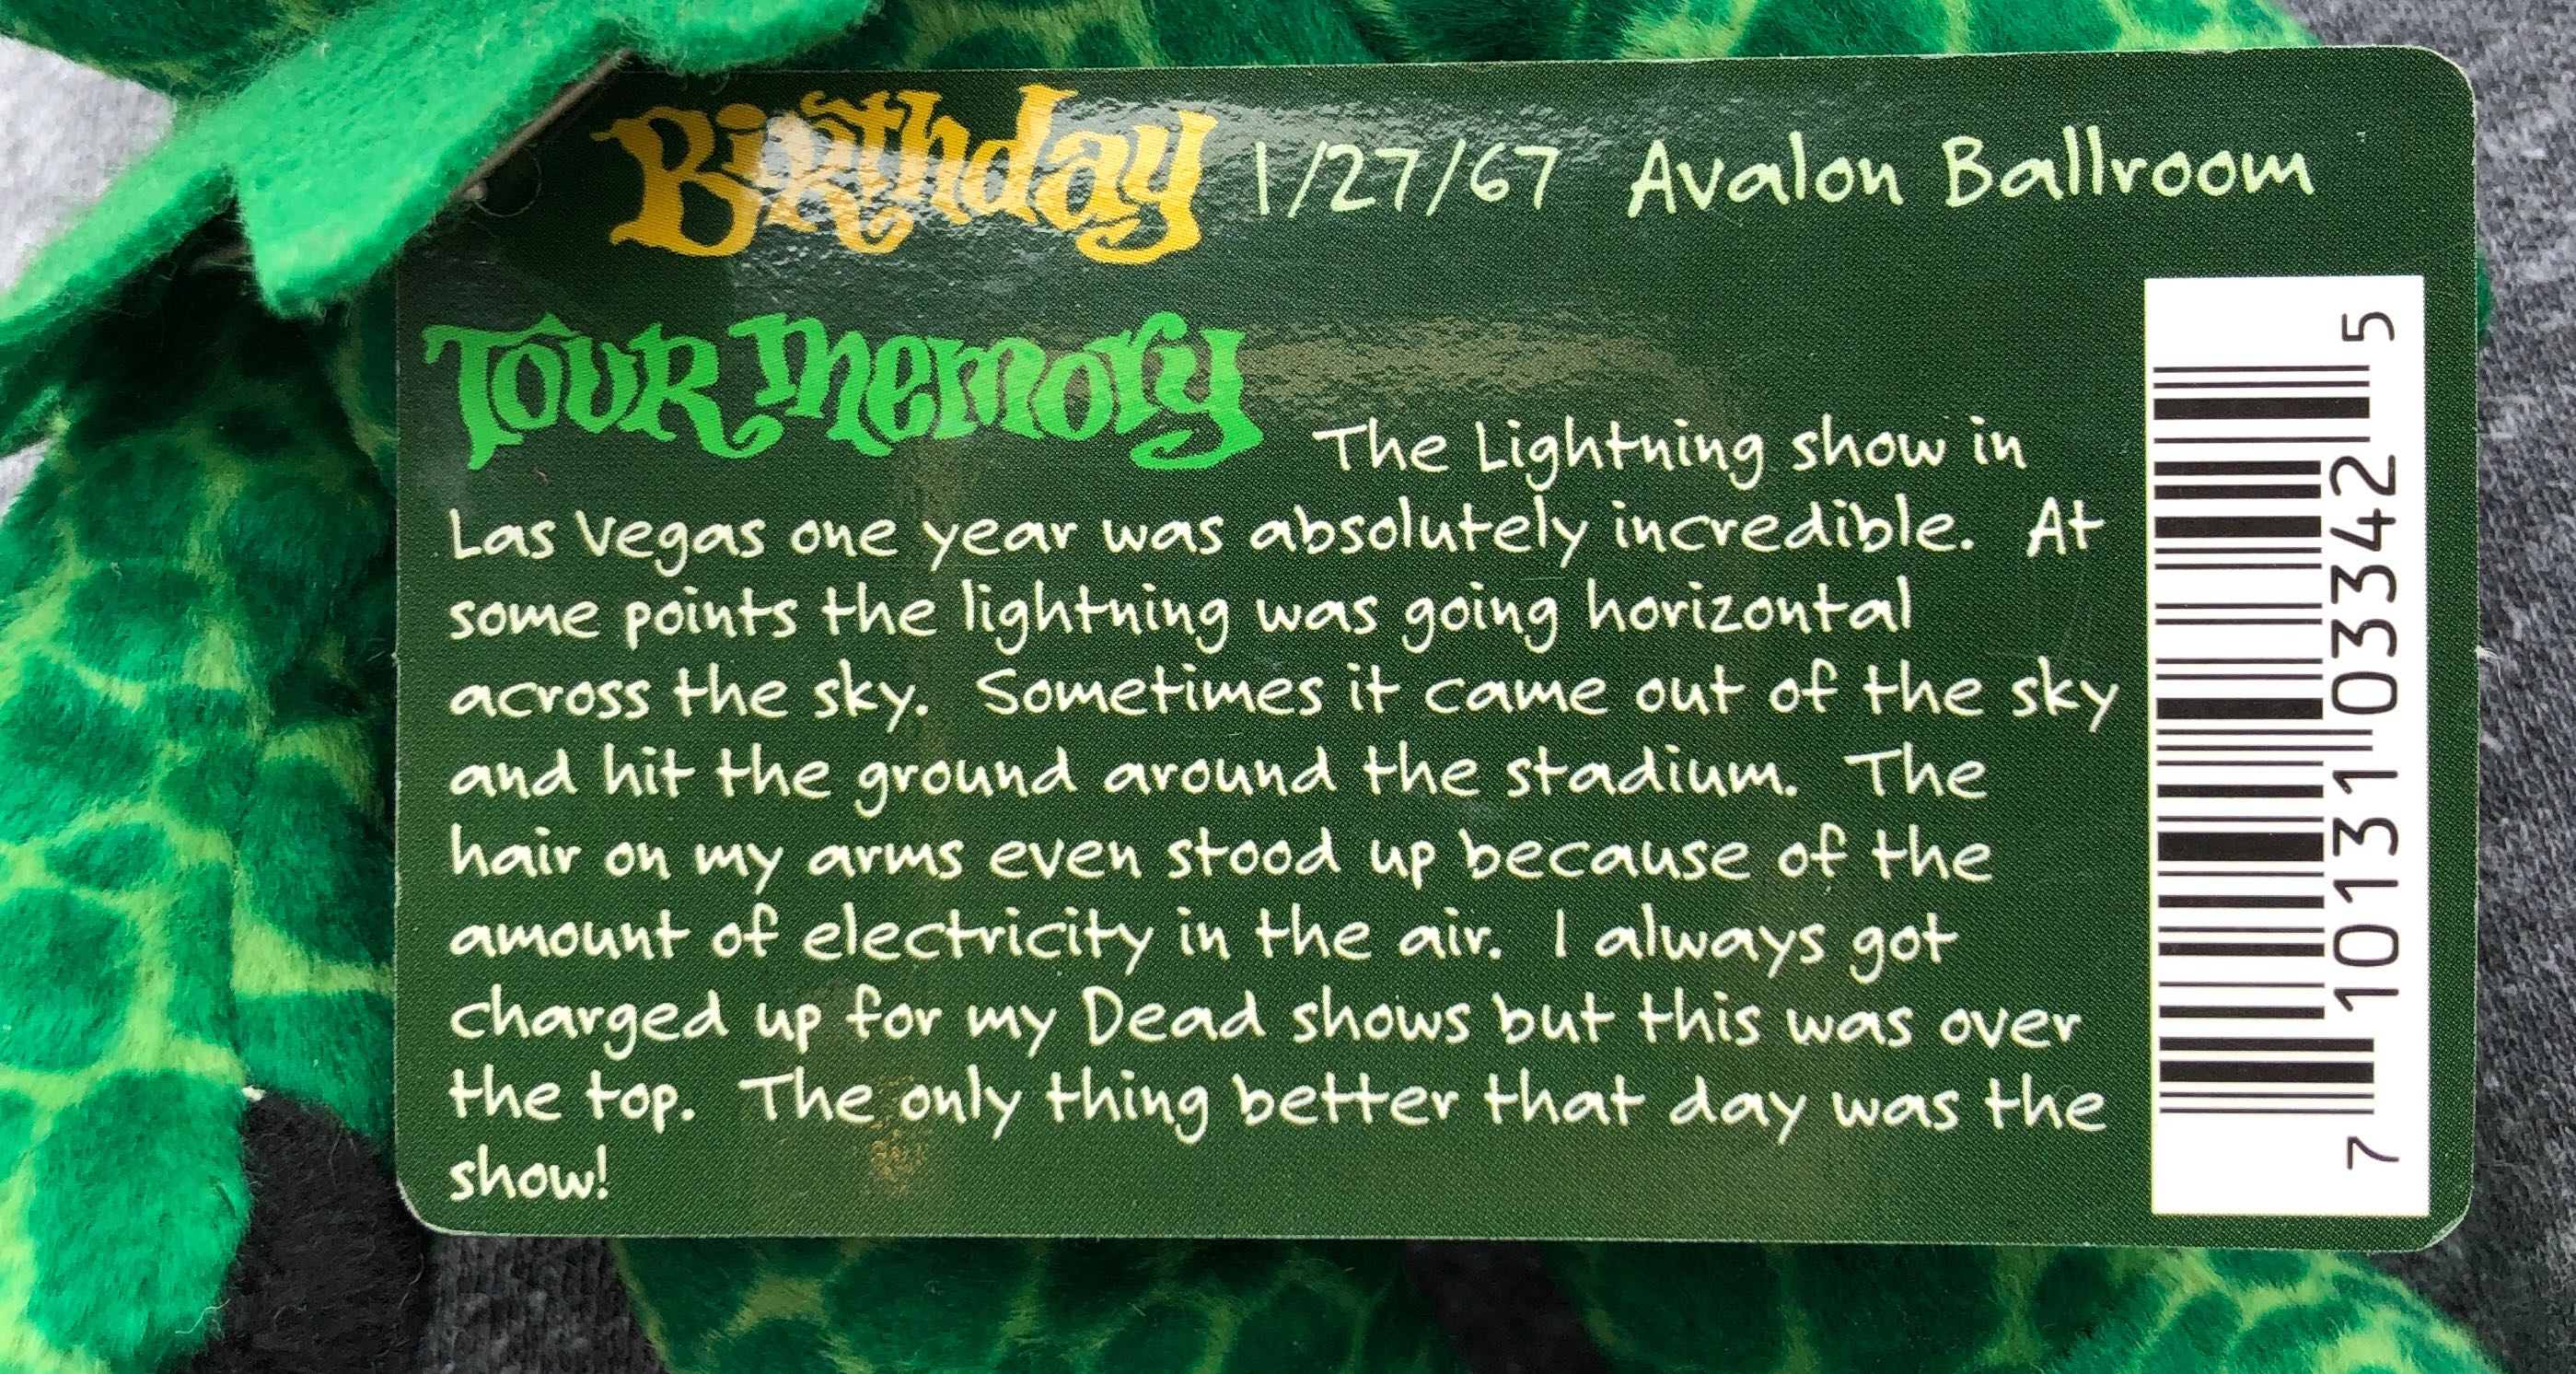 Birthday 1/27/67 Avalon Ballroom
Tour Memory The Lightning show in
Las Vegas one year was absolutely incredible. At
some points the lightning was going horizontal
across the sky. Sometimes it came out of the sky
and hit the ground around the stadium. The
hair on my arms even stood up because of the
amount of electricity in the air. I always got
charged up for my Dead shows but this was over
the top. The only thing better that day was the
show!
7 10131 03342 5